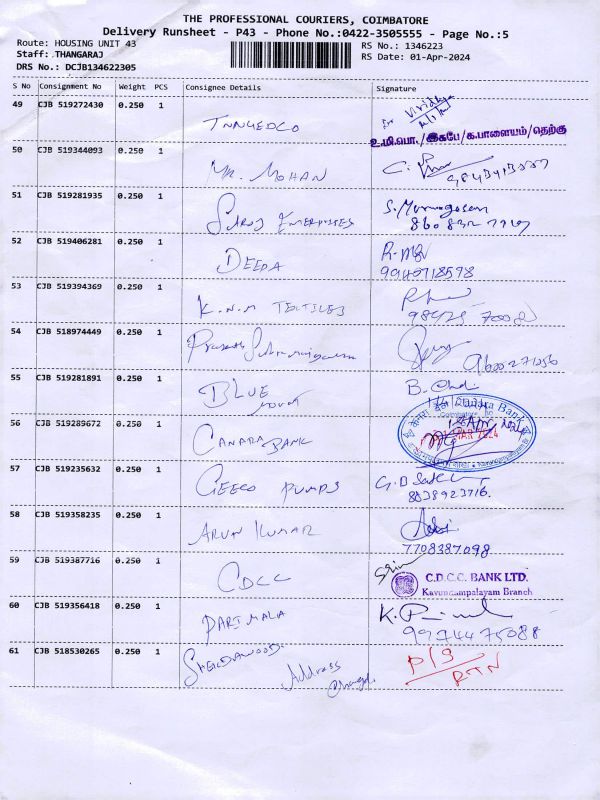 THE PROFESSIONAL COURIERS, COIMBATORE
Delivery Runsheet - P43 - Phone No.:0422-3505555 - Page No.:5
Route: HOUSING UNIT 43 RS No.: 1346223
Staff: THANGARAJ RS Date: 01-Apr-2024
DRS No.: DCJB134622305
S No Consignment No Weight PCS Consignee Details Signature
49 CJB 519272430 0.250 1
TNNGEDCO
உ.மி.பொ./இகபே/க.பாளையம்/தெற்கு
50 CJB 519344093 0.250 1
MR. MOHAN C.
51 CJB 519281935 0.250 1 S. Murugesan
SAROJ ENTERPRISES
52 CJB 519406281 0.250 1
DEEPA 9940718578
53 CJB 519394369 0.250 1
K.N.M TEXTILES 98425 70002
54 CJB 518974449 0.250 1
Prasath 9600271056
55 CJB 519281891 0.250 1 B.
BLUE
56 CJB 519289672 0.250 1 Canara Bank
CANARA BANK
57 CJB 519235632 0.250 1
GEECO PUMPS 8038923716.
58 CJB 519358235 0.250 1
ARUN KUMAR 7708387098
59 CJB 519387716 0.250 1
CDCC C.D.C.C. BANK LTD.
Kavundampalayam Branch
60 CJB 519356418 0.250 1 K.
PARIMALA 9974475088
61 CJB 518530265 0.250 1 P/S
Address RTN
Changed.